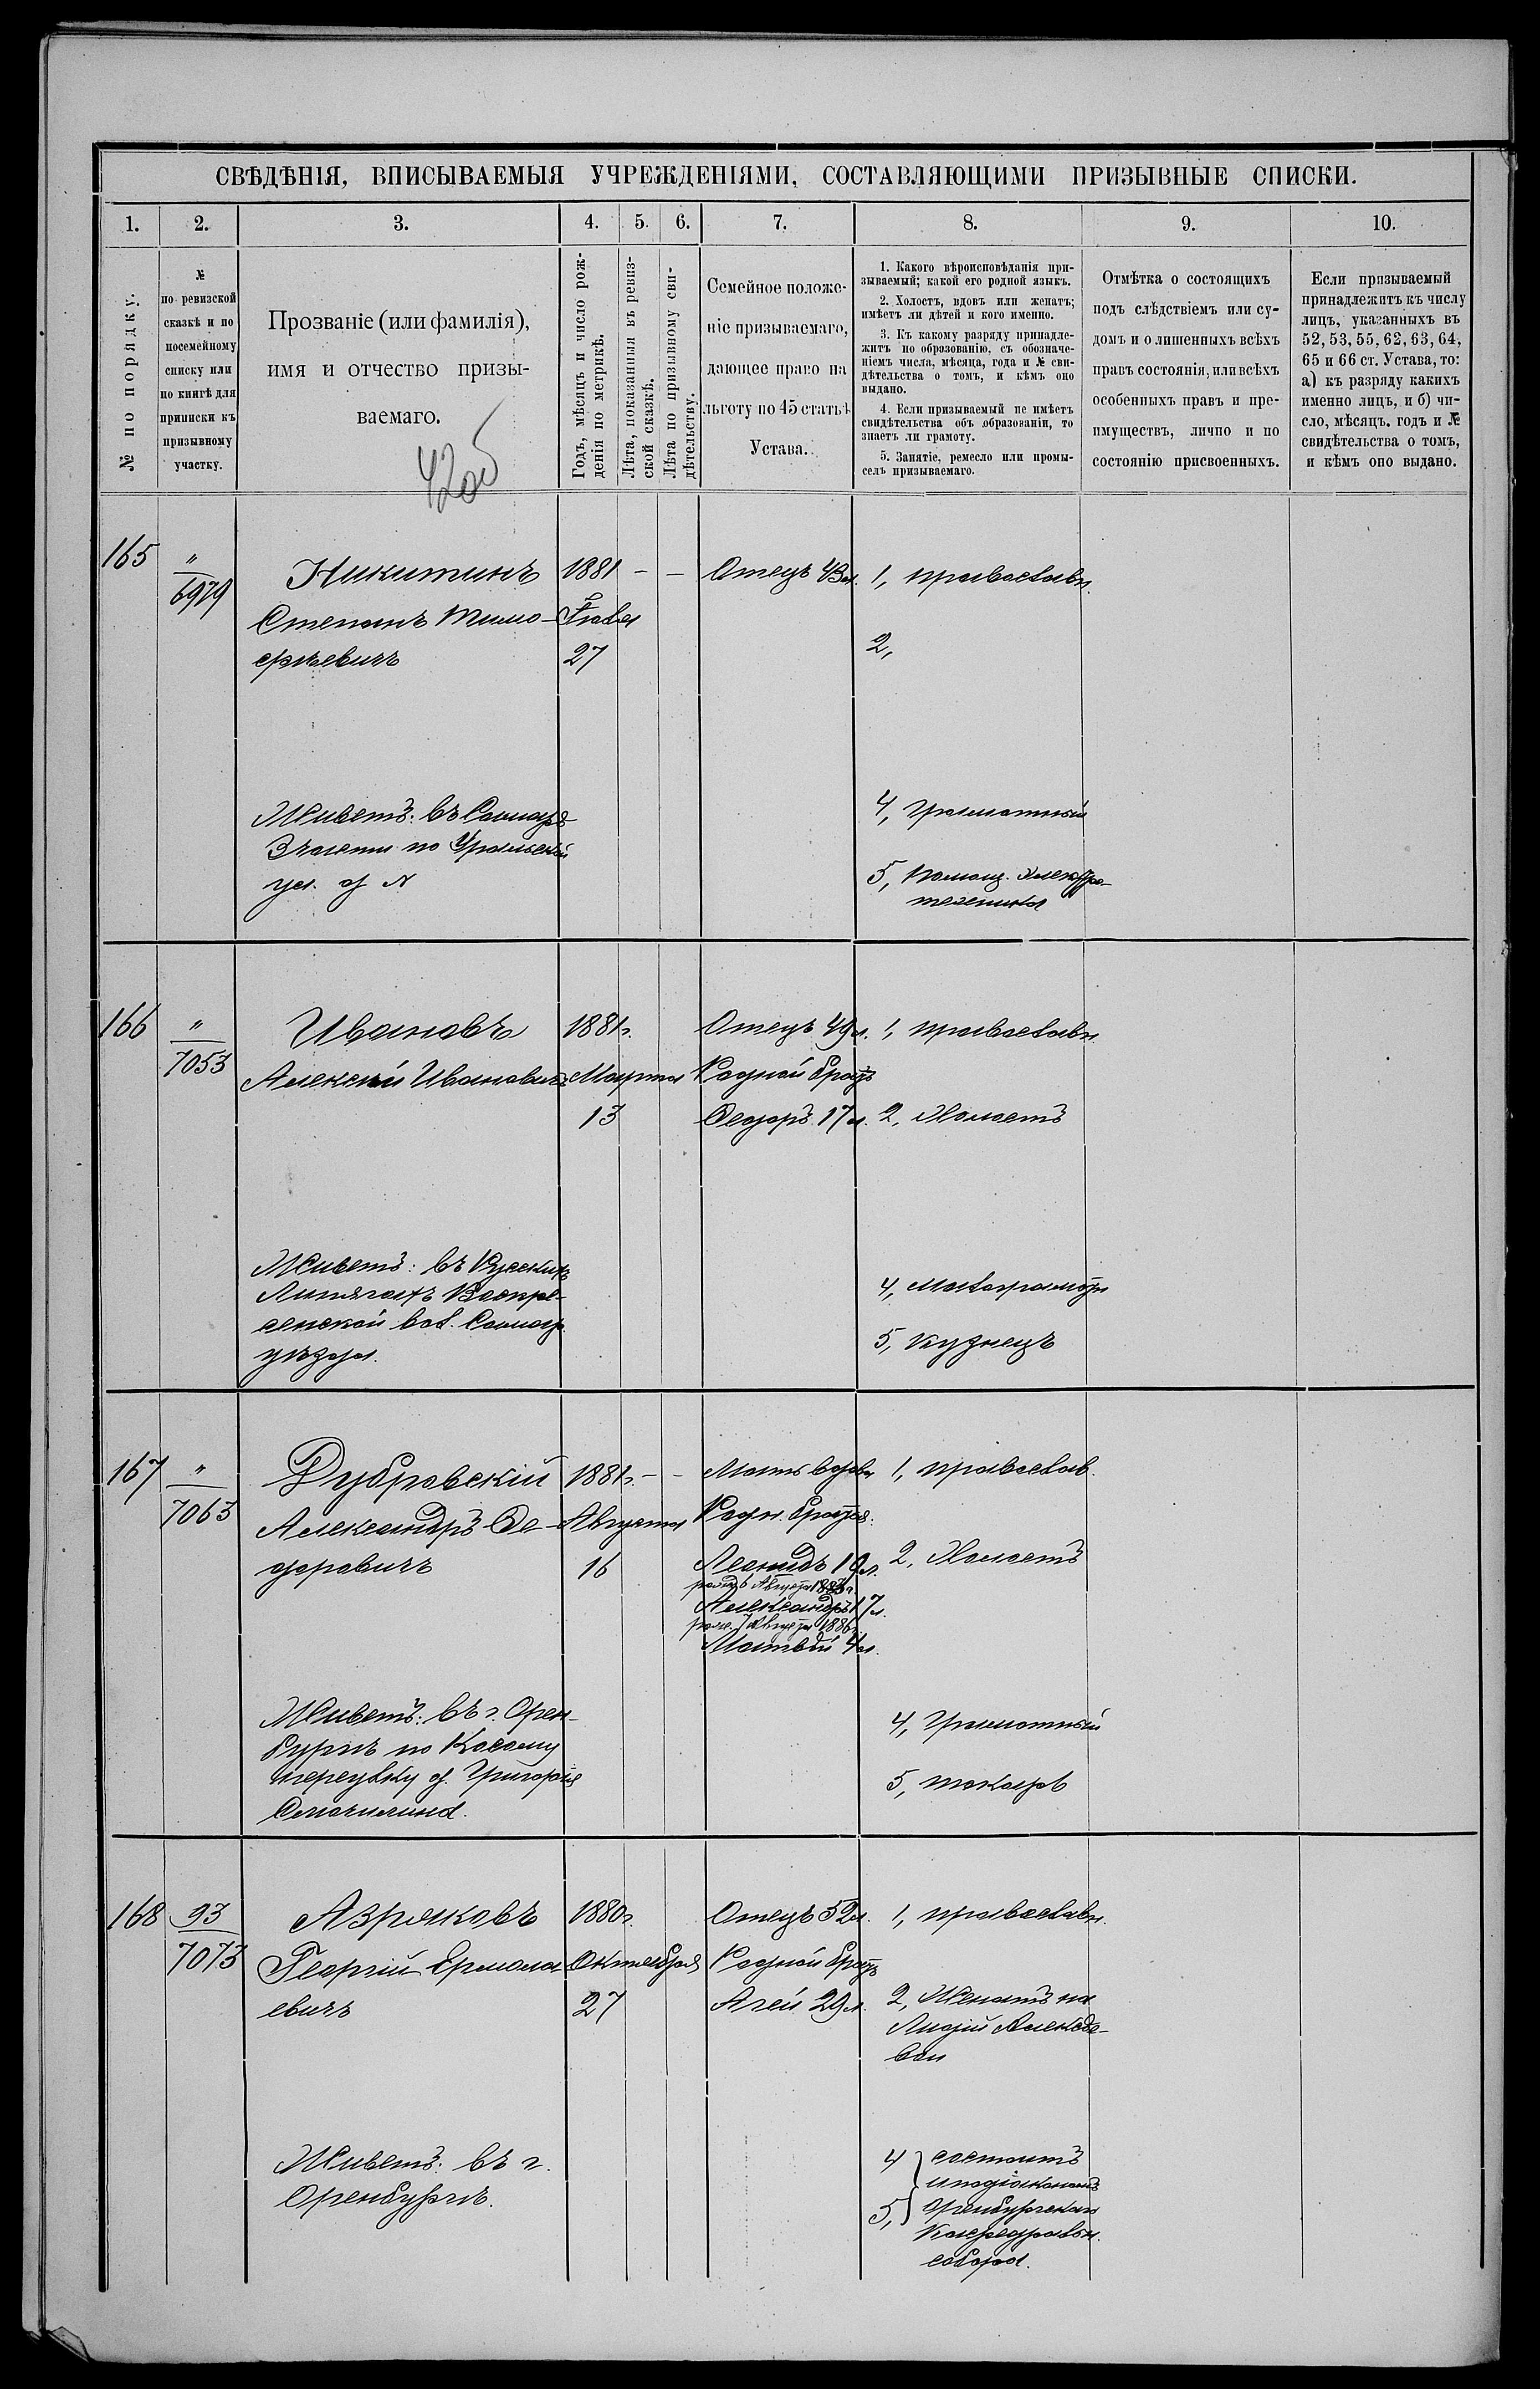 СВѢДѢНІЯ, ВПИСЫВАЕМЫЯ УЧРЕЖДЕНІЯМИ, СОСТАВЛЯЮЩИМИ ПРИЗЫВНЫЕ СПИСКИ.
1. 2. 3. 4. 5. 6. 7. 8. 9. 10.
№ по порядку.
№
по ревизской
сказкѣ и по
посемейному
списку или
по книгѣ для
приписки къ
призывному
участку.
Прозваніе (или фамилія),
имя и отчество призы-
ваемаго.
Годъ, мѣсяцъ и число рож-
денія по метрикѣ.
Лѣта, показанныя въ ревиз-
ской сказкѣ.
Лѣта по призывному сви-
дѣтельству.
Семейное положе-
ніе призываемаго,
дающее право на
льготу по 45 статьѣ
Устава.
1. Какого вѣроисповѣданія при-
зываемый; какой его родной языкъ.
2. Холостъ, вдовъ или женатъ;
имѣетъ ли дѣтей и кого именно.
3. Къ какому разряду принадле-
житъ по образованію, съ обозначе-
ніемъ числа, мѣсяца, года и № сви-
дѣтельства о томъ, и кѣмъ оно
выдано.
4. Если призываемый не имѣетъ
свидѣтельства объ образованіи, то
знаетъ ли грамоту.
5. Занятіе, ремесло или промы-
селъ призываемаго.
Отмѣтка о состоящихъ
подъ слѣдствіемъ или су-
домъ и о лишенныхъ всѣхъ
правъ состоянія, или всѣхъ
особенныхъ правъ и пре-
имуществъ, лично и по
состоянію присвоенныхъ.
Если призываемый
принадлежитъ къ числу
лицъ, указанныхъ въ
52, 53, 55, 62, 63, 64,
65 и 66 ст. Устава, то:
а) къ разряду какихъ
именно лицъ, и б) чи-
сло, мѣсяцъ, годъ и №
свидѣтельства о томъ,
и кѣмъ оно выдано.
420б
165 " Никитинъ 1881 - - Отецъ 43 л. 1, православн.
6979
Степанъ Тимо-
фѣевичъ 27
2,
Живетъ: въ Самарѣ
3 части по Уральской
ул. д №
4, Грамотный
5, Помощ. Электро-
техника
166 " Ивановъ 1881г. Отецъ 49 л. 1, православн.
7053 Алексѣй Ивановичъ Марта Родной братъ
13 Федоръ 17 л. 2, Холостъ
Живетъ: въ Русскихъ
Липягахъ Воскре-
сенской вол. Самар.
уѣзда.
4, Малограмотн
5, Кузнецъ
167 " Дубровскій 1881г. - - Мать вдова 1, православ.
7063 Александръ Фе- Августа Родн. братья:
доровичъ 16 Леонидъ 19 л. 2, Холостъ
Александръ 17 л.
Матвѣй 4 л.
Живетъ: въ г. Орен-
бургѣ по Косому
переулку д. Григорія
4, Грамотный
5, токарь
168 93 Азряковъ 1880г. Отецъ 52 л. 1, православн.
7073 Георгій Ермола Октября Родной братъ
евичъ 27 Агей 29 л. 2, Женатъ на
Лидіи Алексѣе-
вой
Живетъ: въ г.
Оренбургѣ.
4 состоитъ
иподіакономъ
5, Оренбургскаго
Кафедральн.
собора.